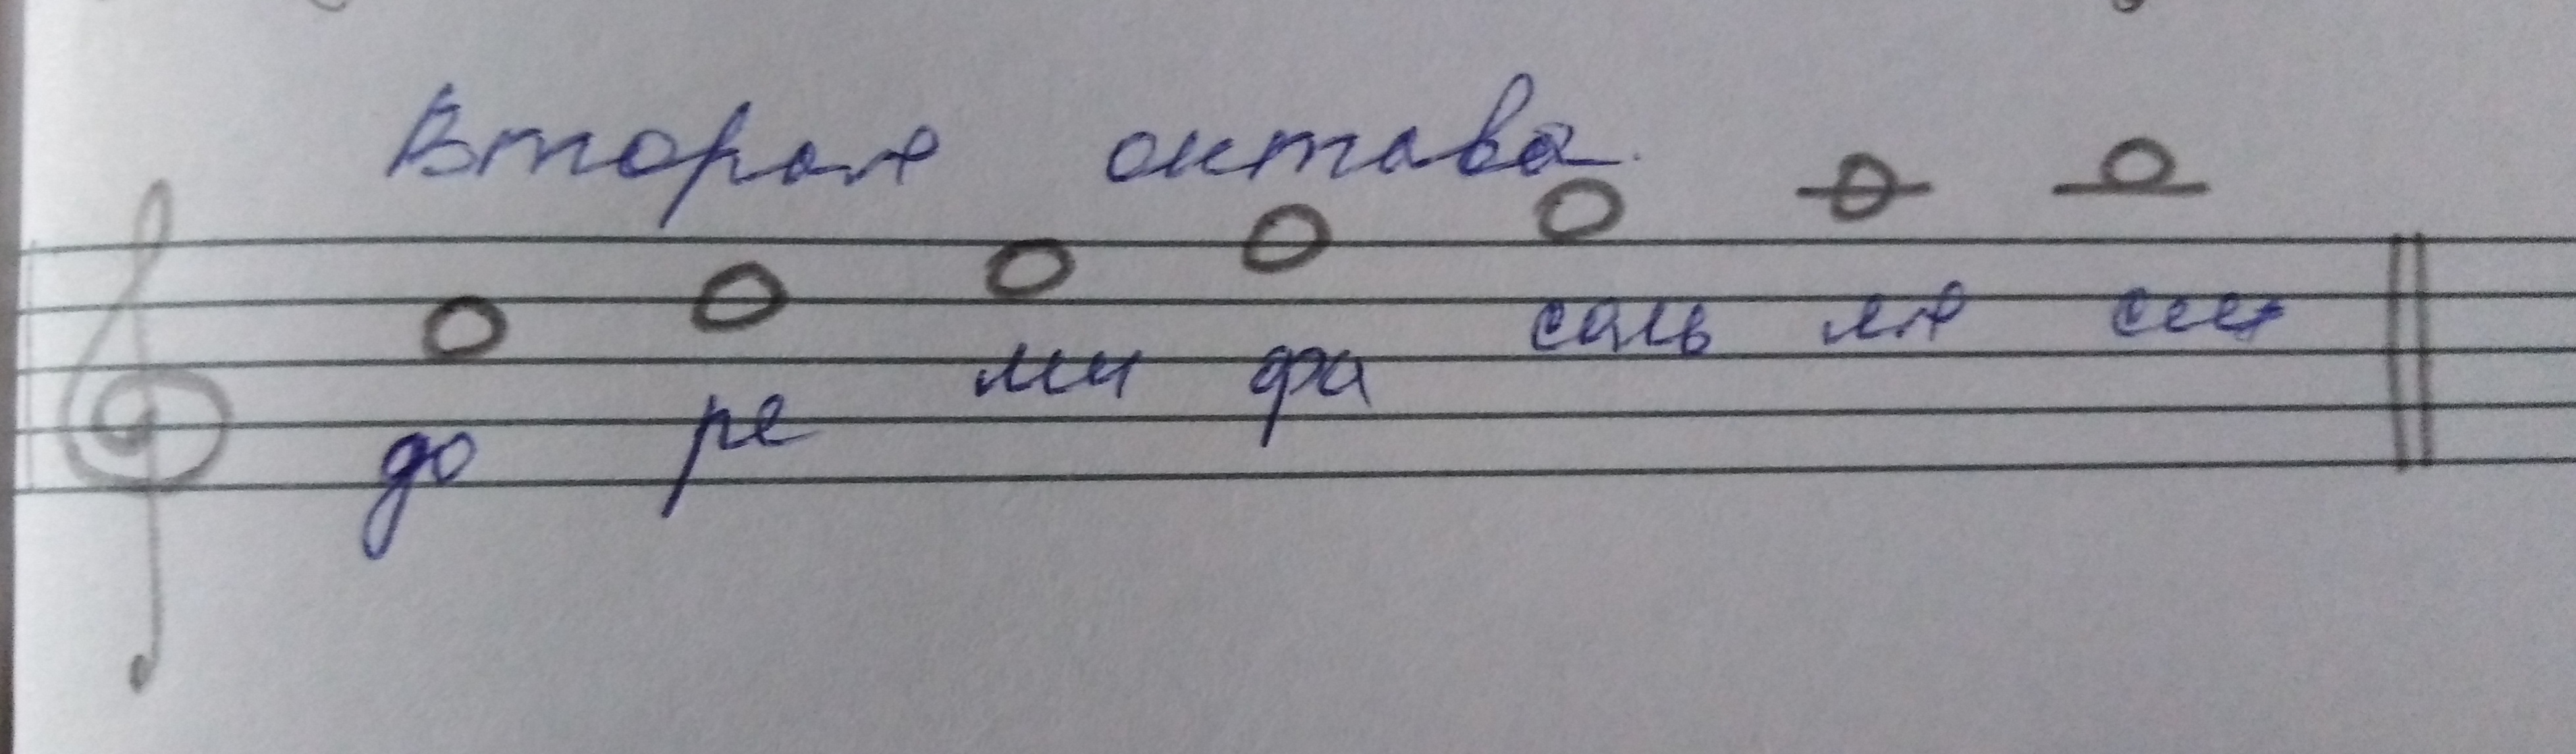 Вторая октава.
до ре ми фа соль ля си